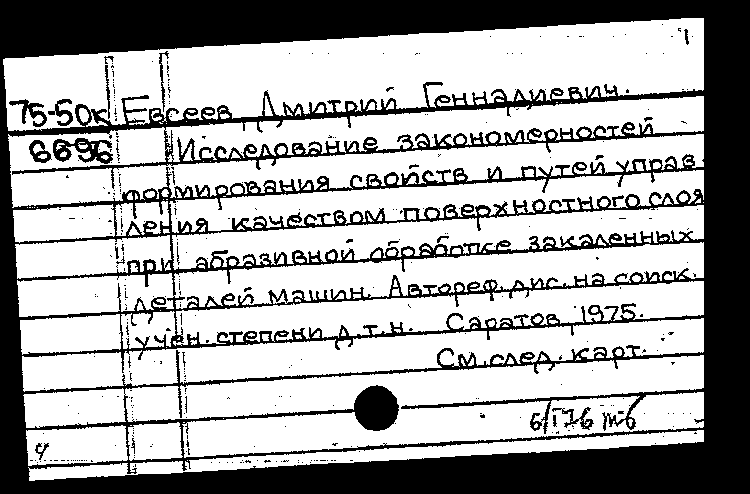 1
75-50к Евсеев Дмитрий Геннадиевич.
6696 Исследование закономерностей
формирования свойств и путей управ-
ления качеством поверхностного слоя
при абразивной обработке закаленных
деталей машин. Автореф. дис. на соиск.
учен. степени д.т.н. Саратов, 1975.
См. след. карт.
б/I 76 м-б
4